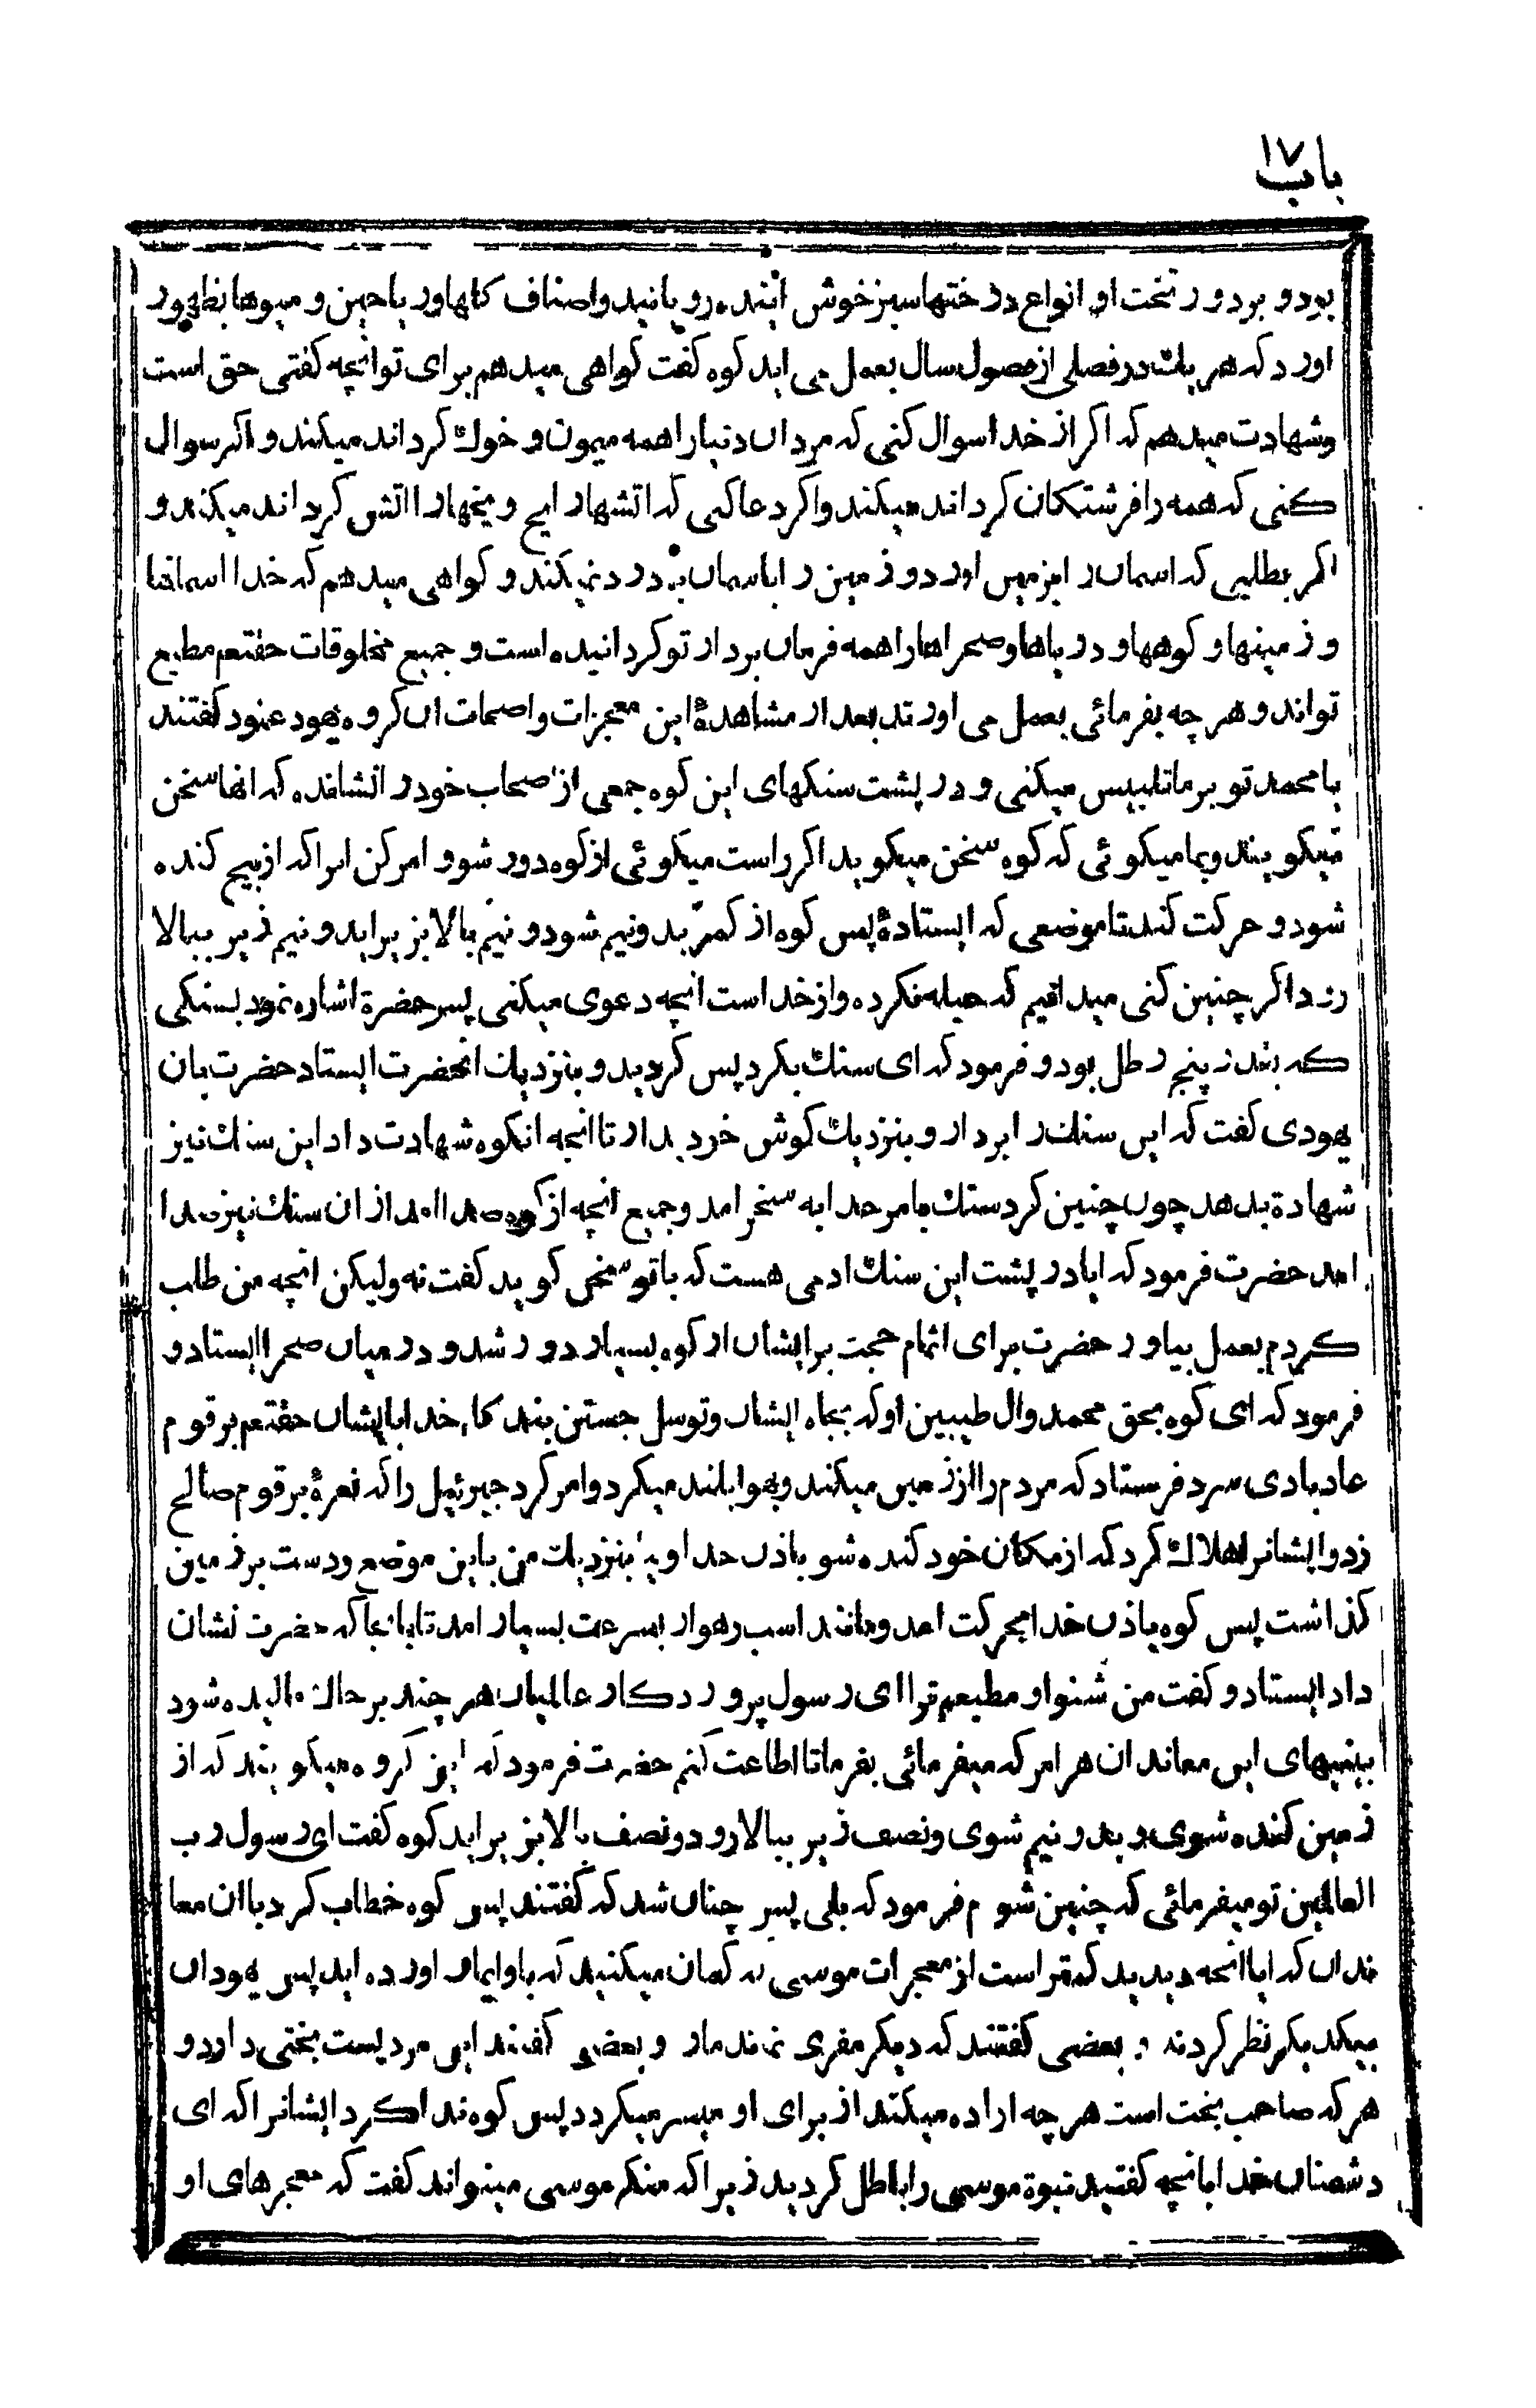 باب ۱۷
بود و بر دور تخت او انواع درختها سبز خوش ایند رویانید و اصناف کلها و ریاحین و میوها بظهور
اورد که هر یك در فصلی از فصول سال بعمل می اید کوه کفت کواهی میدهم برای تو انچه کفتی حق است
و شهادت میدهم که اکر از خدا سوال کنی که مردان دنیا را همه میمون و خوك کرداند میکند و اکر سوال
کنی که همه را فرشتکان کرداند میکند و اکر دعا کنی که اتشها را یخ و یخها را اتش کرداند میکند و
اکر بطلبی که اسمان را بزمین اورد و زمین را باسمان برد میکند و کواهی میدهم که خدا اسمانها
و زمینها و کوهها و دریاها و صحراها را همه فرمان بردار تو کردانیده است و جمیع مخلوقات حقتعم مطیع
تواند و هر چه بفرمائی بعمل می اورند بعد از مشاهدهٔ این معجزات واضحات ان کروه یهود عنود کفتند
یا محمد تو بر ما تلبیس میکنی و در پشت سنکهای این کوه جمعی از اصحاب خود را نشانده که انها سخن
میکویند و بما میکوئی که کوه سخن میکوید اکر راست میکوئی از کوه دور شو و امر کن انرا که از بیخ کنده
شود و حرکت کند تا موضعی که ایستادهٔ پس کوه از کمر بدو نیم شود و نیم بالا بزیر اید و نیم زیر ببالا
رود اکر چنین کنی میدانیم که حیله نکرده و از خداست انچه دعوی میکنی پس حضرة اشاره نمود بسنکی
که بقدر پنج رطل بود و فرمود که ای سنك بکرد پس کردید و بنزدیك انحضرت ایستاد حضرت بان
یهودی کفت که این سنك را بردار و بنزدیك کوش خود بدار تا انچه انکوه شهادت داد این سنك نیز
شهادة بدهد چون چنین کرد سنك بامر خدا به سخن امد و جمیع انچه از کوه صدا امد از ان سنك نیز صدا
امد حضرت فرمود که ایا در پشت این سنك ادمی هست که با تو سخن کوید کفت نه ولیکن انچه من طلب
کردم بعمل بیاور حضرت برای اتمام حجت برایشان از کوه بسیار دور شد و در میان صحرا ایستاد و
فرمود که ای کوه بحق محمد و ال طیبین او که بجاه ایشان و توسل جستن بند کان خدا بایشان حقتعم بر قوم
عاد بادی سرد فرستاد که مردم را از زمین میکند و بهوا بلند میکرد و امر کرد جبرئیل را که نعرهٔ بر قوم صالح
زد و ایشانرا هلاك کرد که از مکان خود کنده شو باذن خدا و بیا بنزدیك من باین موضع و دست بر زمین
کذاشت پس کوه باذن خدا بحرکت امد و مانند اسب رهوار بسرعت بسیار امد تا بانجا که حضرت نشان
داد ایستاد و کفت من شنوا و مطیعم ترا ای رسول پروردکار عالمیان هر چند بر خاك مالیده شود
بینیهای این معاندان هر امر که میفرمائی بفرما تا اطاعت کنم حضرت فرمود که این کروه میکویند که از
زمین کنده شوی و بدو نیم شوی و نصف زیر ببالا رود و نصف بالا بزیر اید کوه کفت ای رسول رب
العالمین تو میفرمائی که چنین شوم فرمود که بلی پس چنان شد که کفتند پس کوه خطاب کرد با ان معا
ندان که ایا انچه دیدید کمتر است از معجزات موسی که کمان میکنید که باو ایمان اورده اید پس یهودان
بیکدیکر نظر کردند و بعضی کفتند که دیکر مفری نماند مارا و بعضی کفتند این مردیست بختی دارد و
هر که صاحب بخت است هر چه اراده میکند از برای او میسر میکردد پس کوه ندا کرد ایشانرا که ای
دشمنان خدا بانچه کفتید نبوة موسی را باطل کردید زیرا که منکر موسی میتواند کفت که معجزهای او